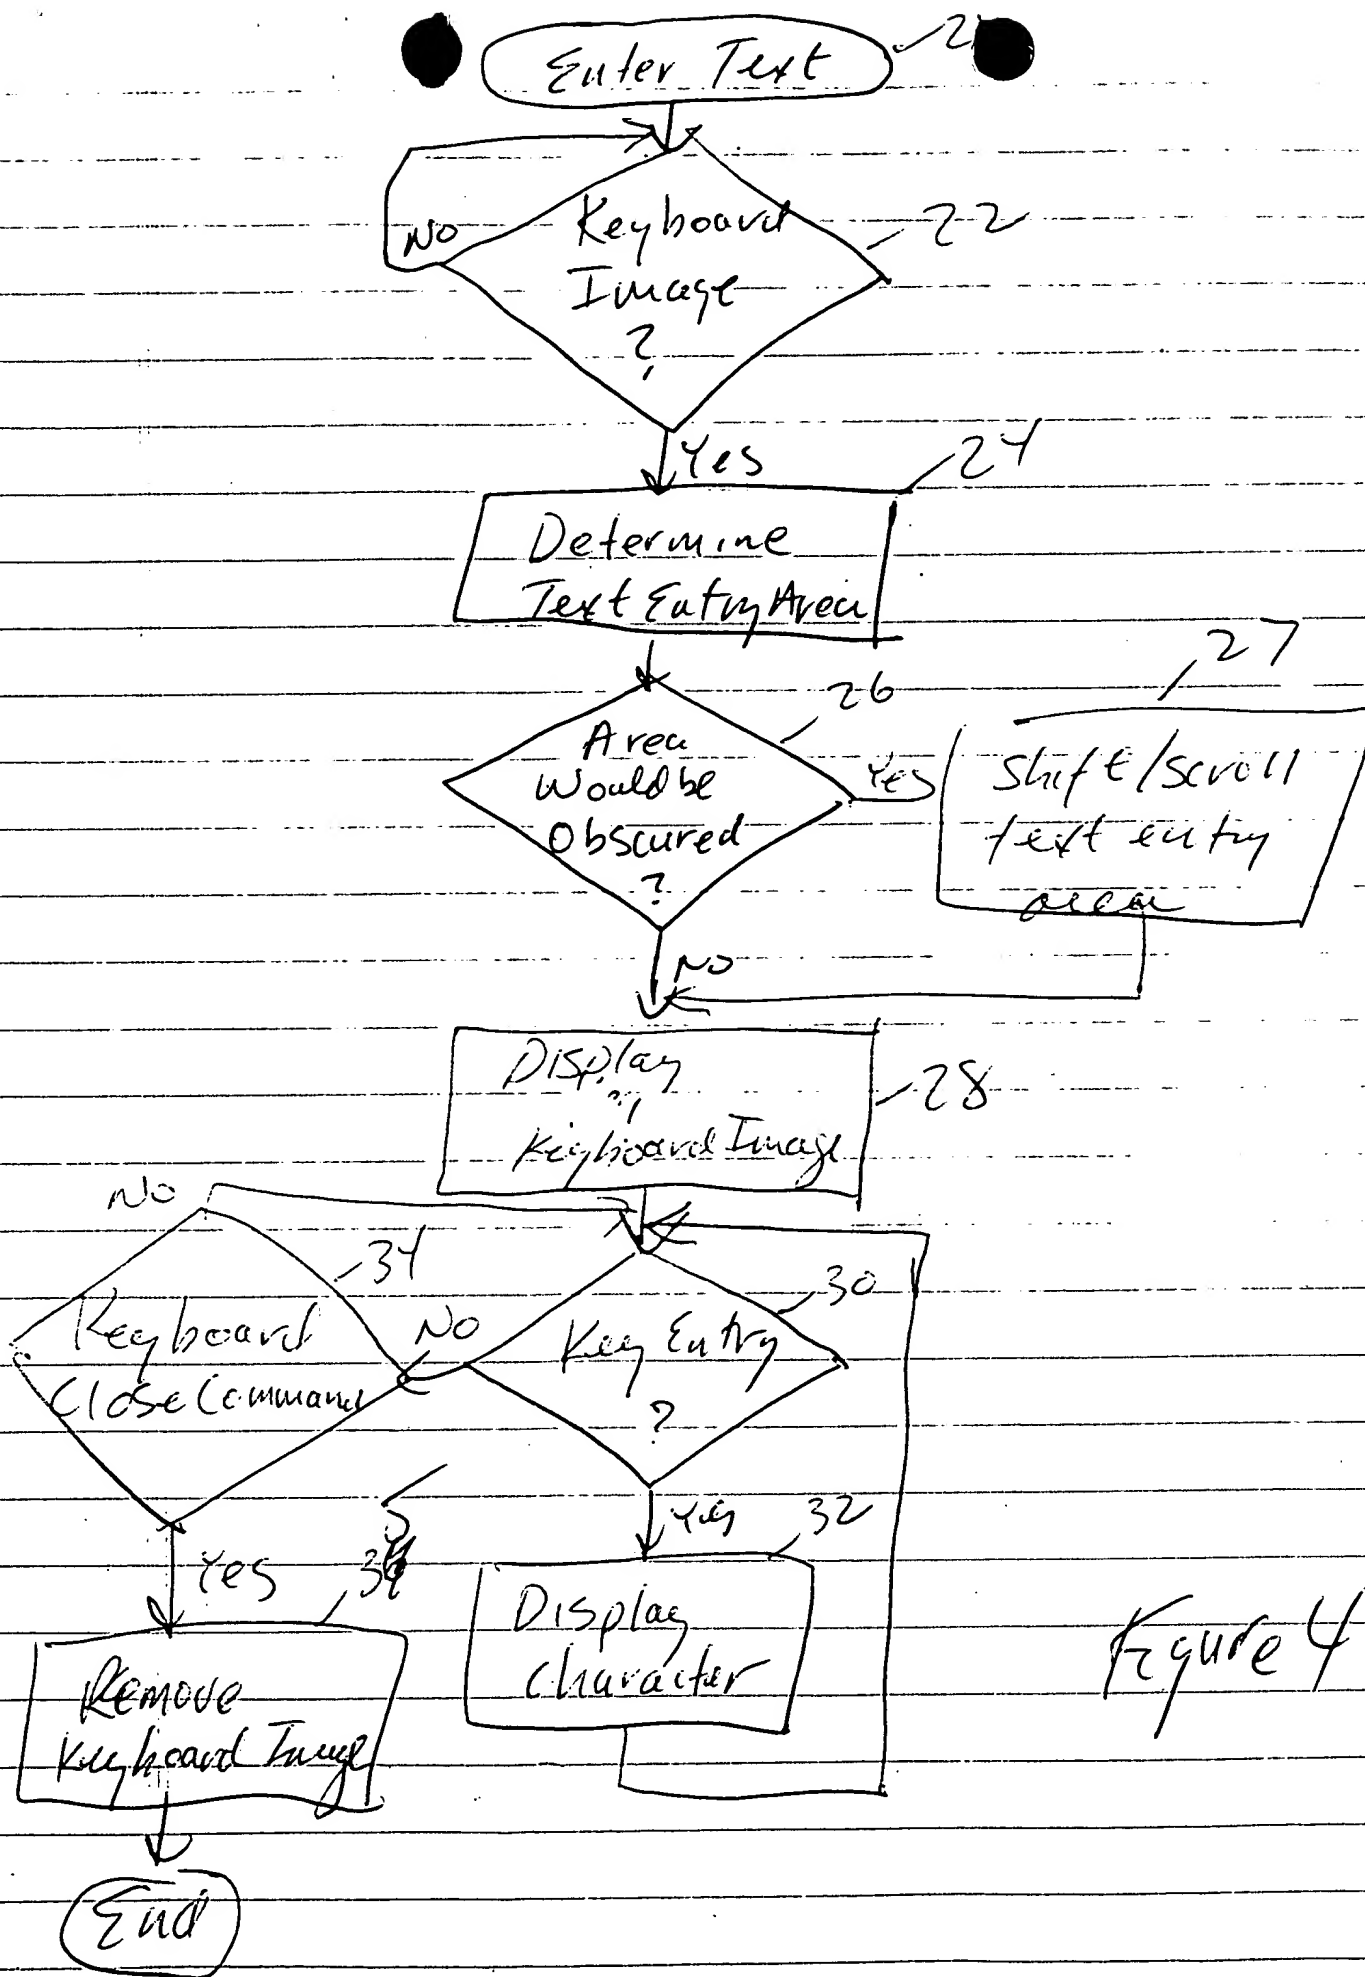 Enter Text
No
Keyboard
Image
?
22
Yes
24
Determine
Text Entry Area
26
Area
Would be
Obscured
?
Yes
27
Shift/scroll
text entry
area
No
Display
Keyboard Image
28
No
34
Keyboard
Close Command
No
30
Key Entry
?
Yes
32
Display
Character
Yes
Remove
Keyboard Image
End
Figure 4